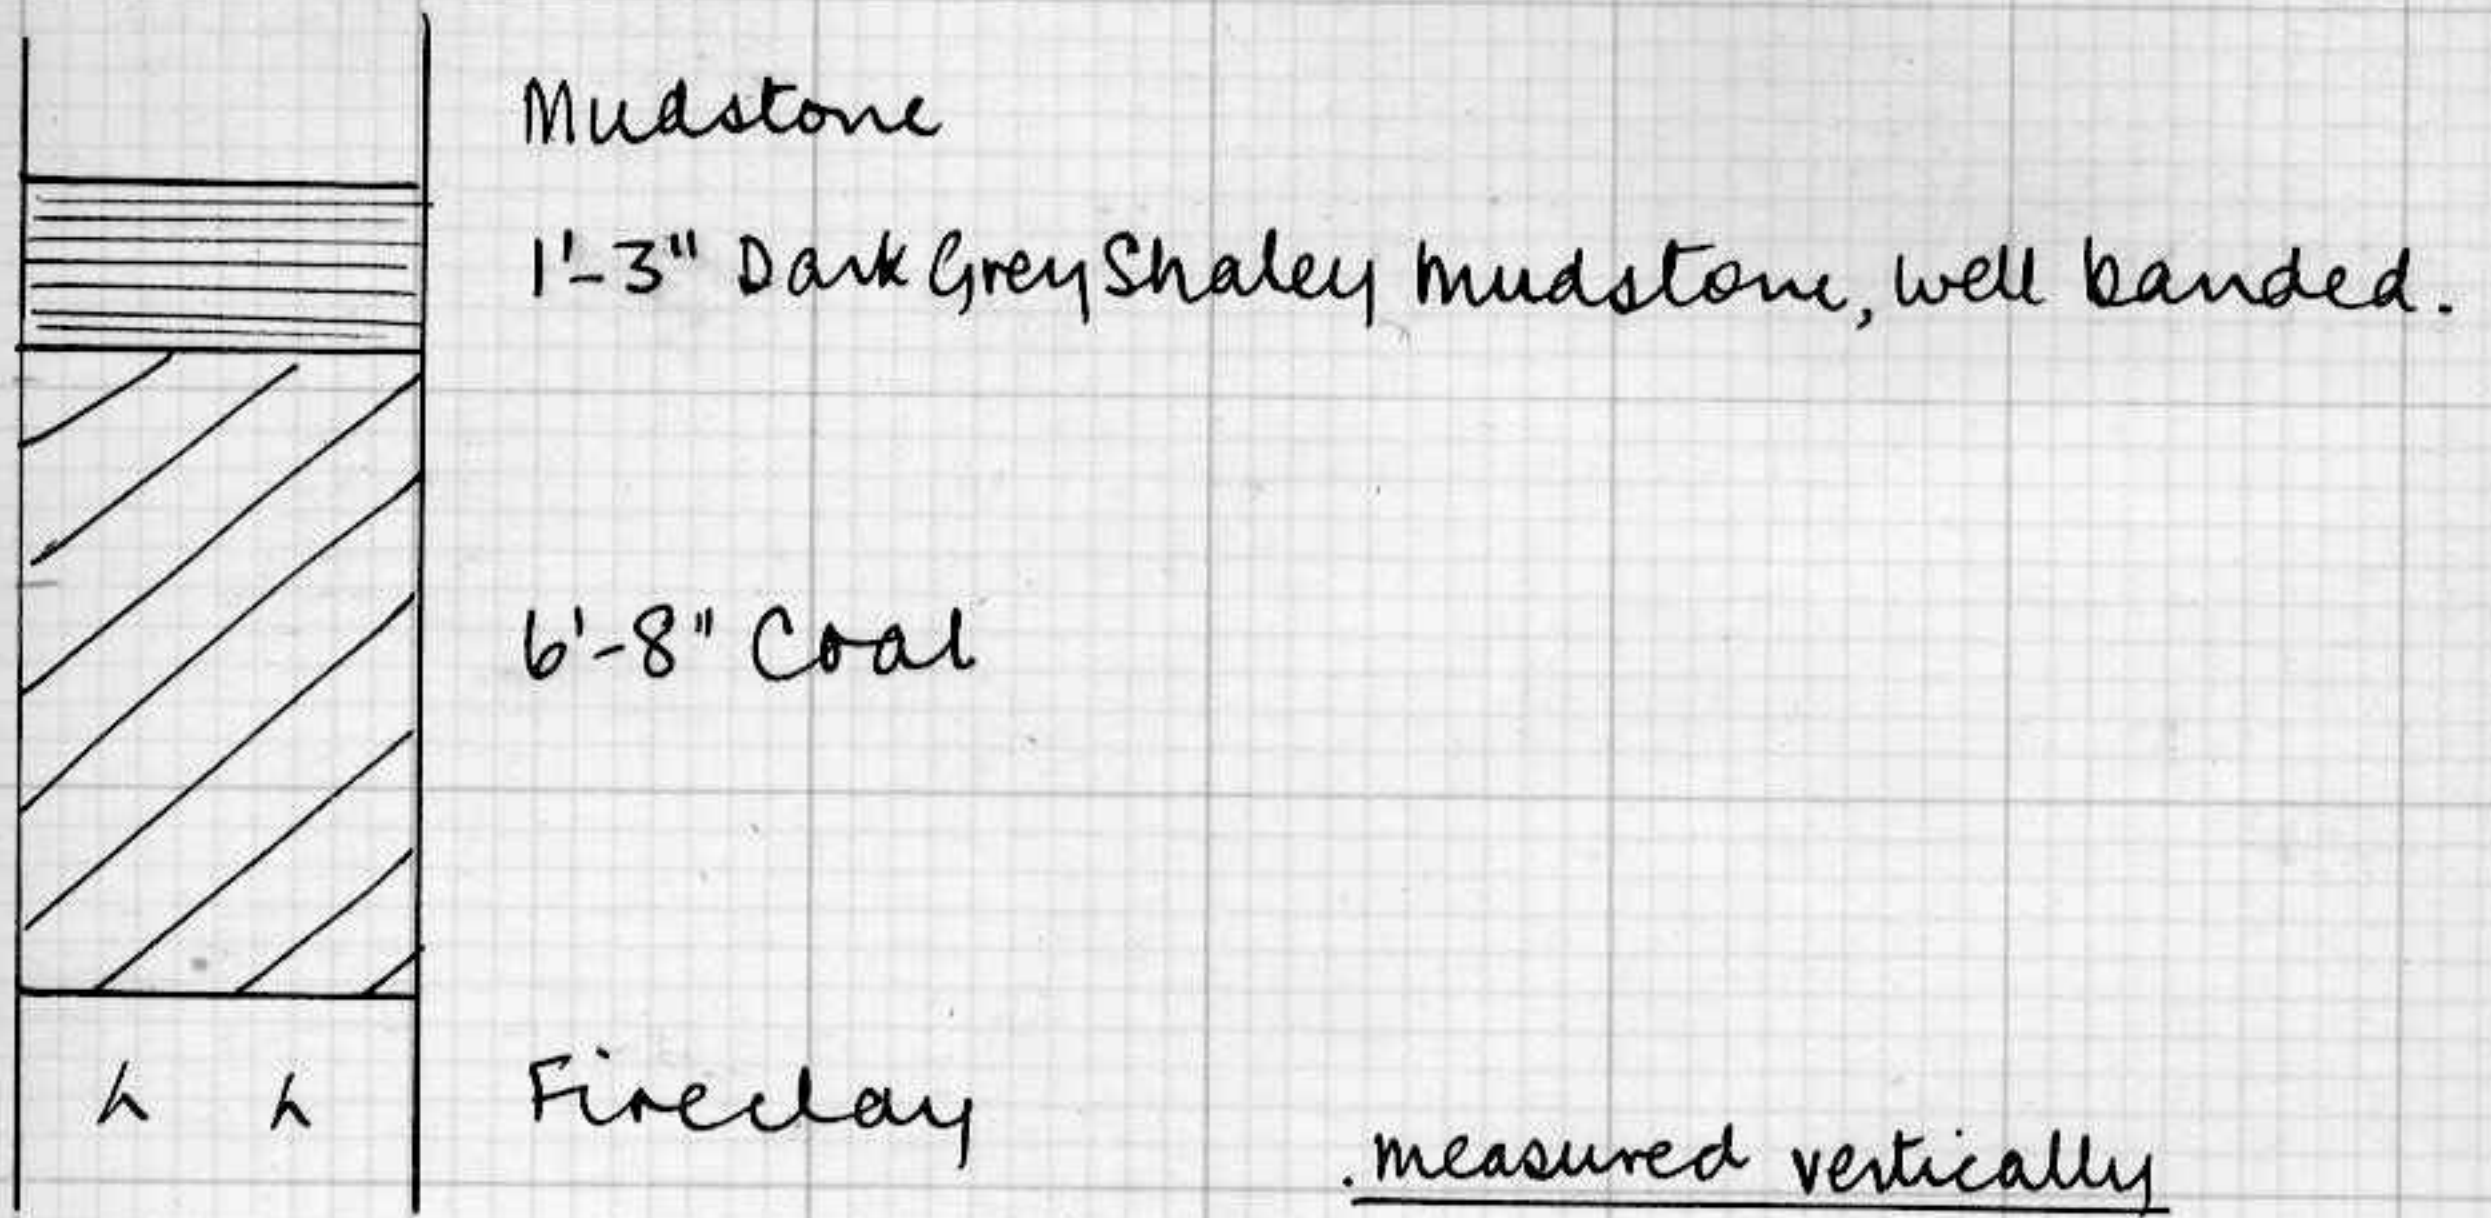 Mudstone
1'-3" Dark Grey Shaley Mudstone, well banded.
6'-8" Coal
Fireclay
.measured vertically